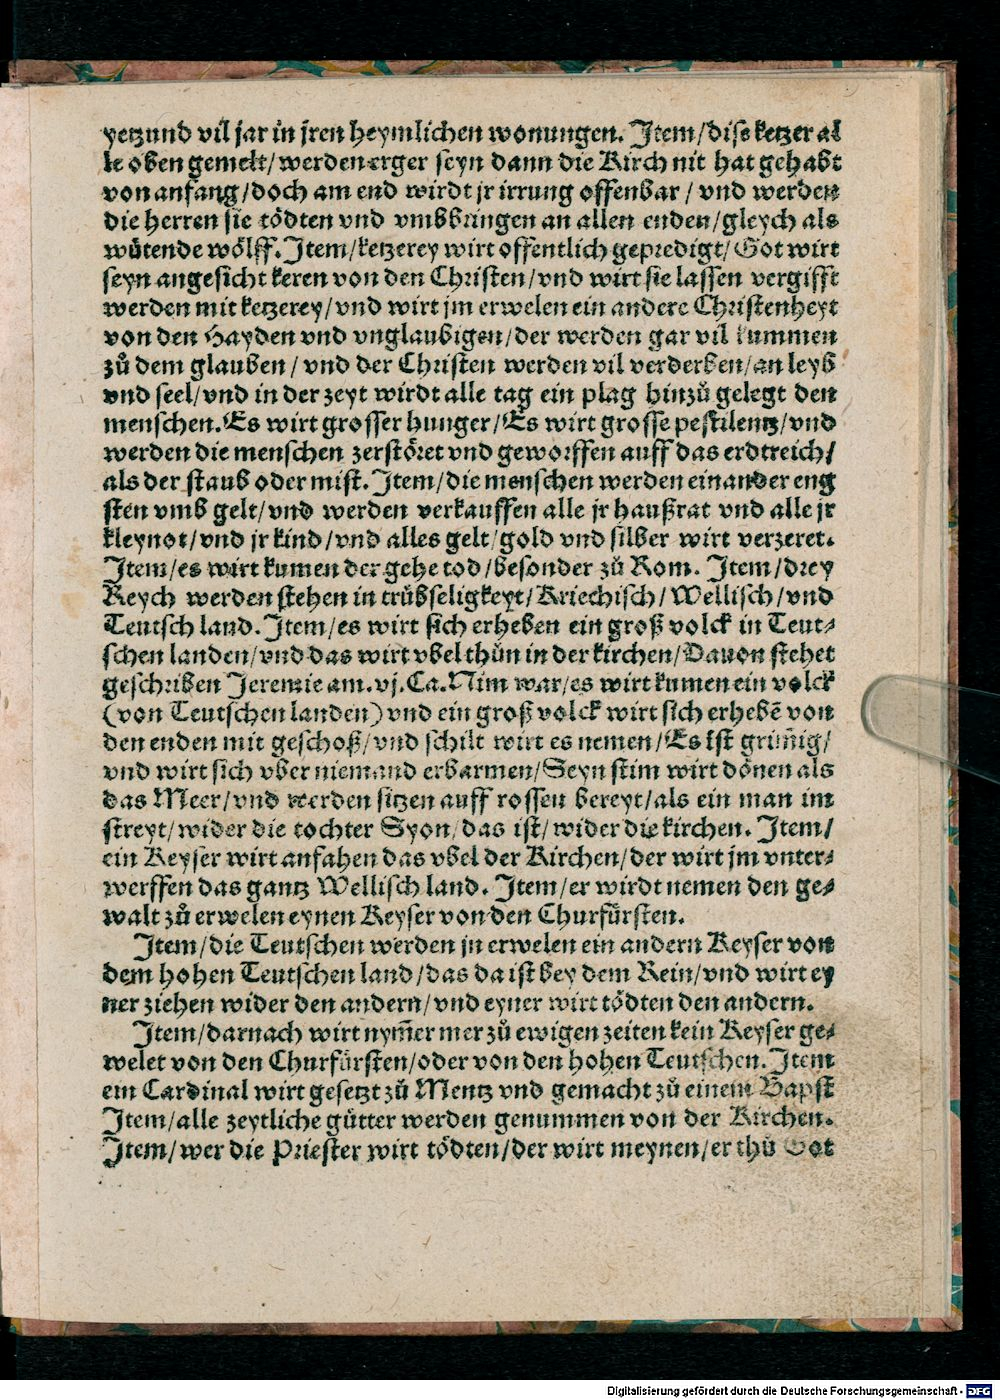 yetzund vil jar in jren heymlichen wonungen. Item/dise ketzer al
le oben gemelt/werden erger seyn dann die Kirch nit hat gehabt
von anfang/doch am end wirdt jr irrung offenbar/ vnd werden
die herren sie tödten vnd vmbbringen an allen enden/gleych als
wütende wölff. Item/ketzerey wirt offentlich gepredigt/Got wirt
seyn angesicht keren von den Christen/vnd wirt sie lassen vergifft
werden mit ketzerey/vnd wirt jm erwelen ein andere Christenheyt
von den Hayden vnd vnglaubigen/der werden gar vil kummen
zů dem glauben/ vnd der Christen werden vil verderben/an leyb
vnd seel/vnd in der zeyt wirdt alle tag ein plag hinzů gelegt den
menschen. Es wirt grosser hunger/Es wirt grosse pestilentz/vnd
werden die menschen zerstöret vnd geworffen auff das erdtreich/
als der staub oder mist. Item/die menschen werden einander eng
sten vmb gelt/vnd werden verkauffen alle jr haußrat vnd alle jr
kleynot/vnd jr kind/vnd alles gelt/gold vnd silber wirt verzeret.
Item/es wirt kumen der gehe tod/besonder zů Rom. Item/drey
Reych werden stehen in trübseligkeyt/Kriechisch/Wellisch/vnd
Teutsch land. Item/es wirt sich erheben ein groß volck in Teut⸗
schen landen/vnd das wirt vbel thůn in der kirchen/Dauon stehet
geschriben Jeremie am. vj. Ca. Nim war/es wirt kumen ein volck
(von Teutschen landen) vnd ein groß volck wirt sich erhebē von
den enden mit geschoß/vnd schilt wirt es nemen/Es ist grim̄ig/
vnd wirt sich vber niemand erbarmen/Seyn stim wirt dönen als
das Meer/vnd werden sitzen auff rossen bereyt/als ein man im
streyt/wider die tochter Syon/das ist/wider die kirchen. Item/
ein Keyser wirt anfahen das vbel der Kirchen/der wirt jm vnter⸗
werffen das gantz Wellisch land. Item/er wirdt nemen den ge⸗
walt zů erwelen eynen Keyser von den Churfürsten.
Item/die Teutschen werden jn erwelen ein andern Keyser von
dem hohen Teutschen land/das da ist bey dem Rein/vnd wirt ey
ner ziehen wider den andern/vnd eyner wirt tödten den andern.
Item/darnach wirt nym̄er mer zů ewigen zeiten kein Keyser ge⸗
welet von den Churfürsten/oder von den hohen Teutschen. Item
ein Cardinal wirt gesetzt zů Mentz vnd gemacht zů einem Bapst
Item/alle zeytliche gütter werden genummen von der Kirchen.
Item/wer die Priester wirt tödten/der wirt meynen/er thů Got
Digitalisierung gefördert durch die Deutsche Forschungsgemeinschaft - DFG